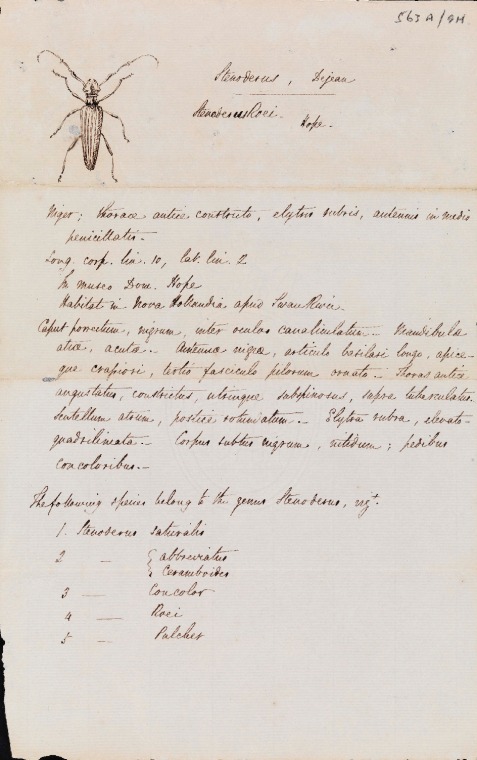 563A/9H
Stenoderus, Dejean
Stenoderus Roei.
Hope.
Niger; thorace antice constricto, elytris rubris, antennis in medio
penicillatis.
Long. corp. lin. 10, lat. lin. 2
In museo Dom. Hope
Habitat in Nova Hollandia apud Swan River.
Caput porrectum, nigrum, inter oculos canaliculatum. Mandibulæ
atræ, acutæ. Antennæ nigræ, articulo basilari longo, apice-
que crassiori, tertio fasciculo pilorum ornato. Thorax antice
angustatus, constrictus, utrinque subspinosus, supra tuberculatus.
Scutellum atrum, postice rotundatum. Elytra rubra, elevato-
quadrilineata. Corpus subtus nigrum, nitidum; pedibus
concoloribus.
The following species belong to the genus Stenoderus, vizt.
1. Stenoderus suturalis
2 — { abbreviatus
{ Ceramboides
3 — Concolor
4 — Roei
5 — Pulcher